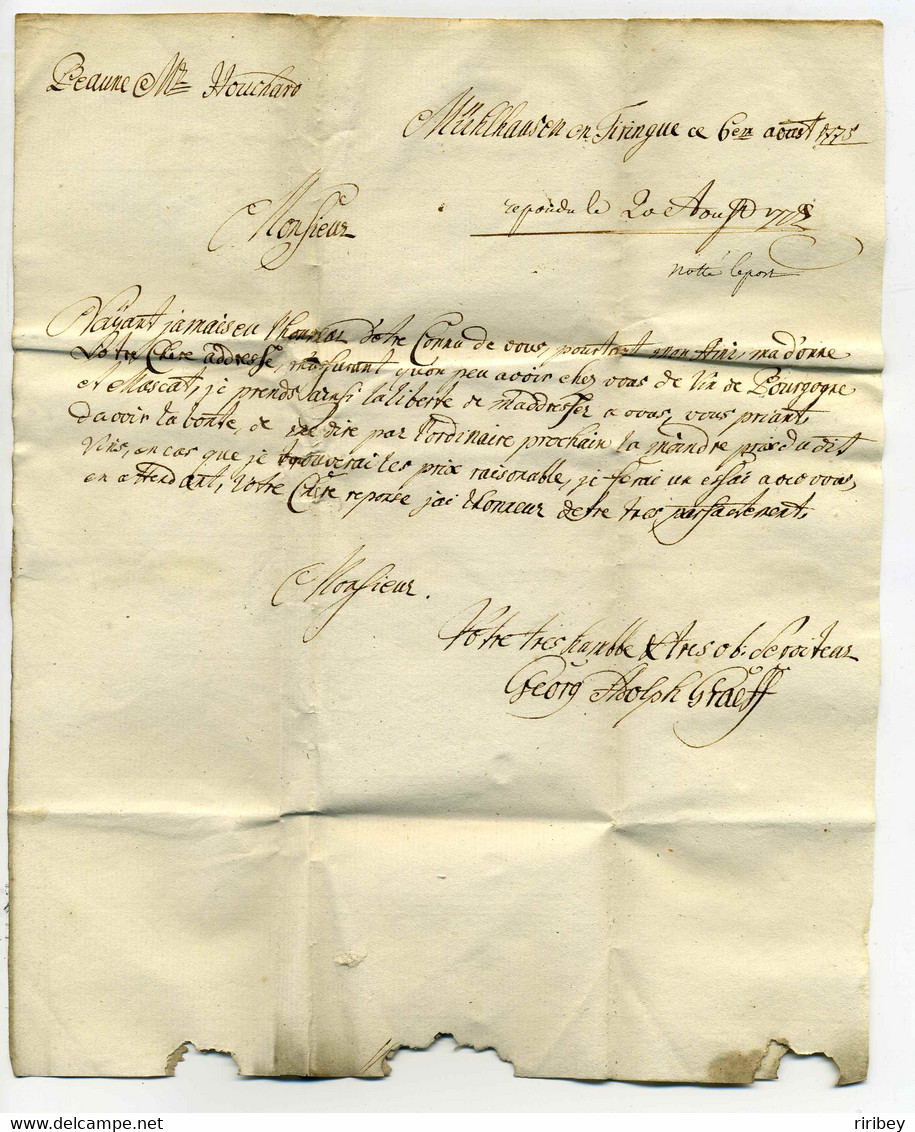 Beaune Mr Houchard
Mühlhausen en Tiringue ce 6em aoust 1775
repondu le 20 Aoust 1775
Monsieur
notté le port
N'aÿant jamais eu l'honneur d'etre Connu de vous, pourtant mon Ami, ma donne
Votre Chere addresse, m'assurant qu'on peu avoir chez vous de Vin de Bourgogne
et Muscat, je prends ainsi la liberte de m'addresser a vous, vous priant
d'avoir la bonte, de me dire par l'ordinaire prochain la moindre prix du dit
Vins, en cas que je trouverai les prix raisonable, je ferai un essai avec vous,
en attendant, Votre Chere reponse j'ai l'honneur detre tres parfaitement
Monsieur.
Votre tres humble & tres ob: Serviteur
Georg Adolph Graeff
riribey